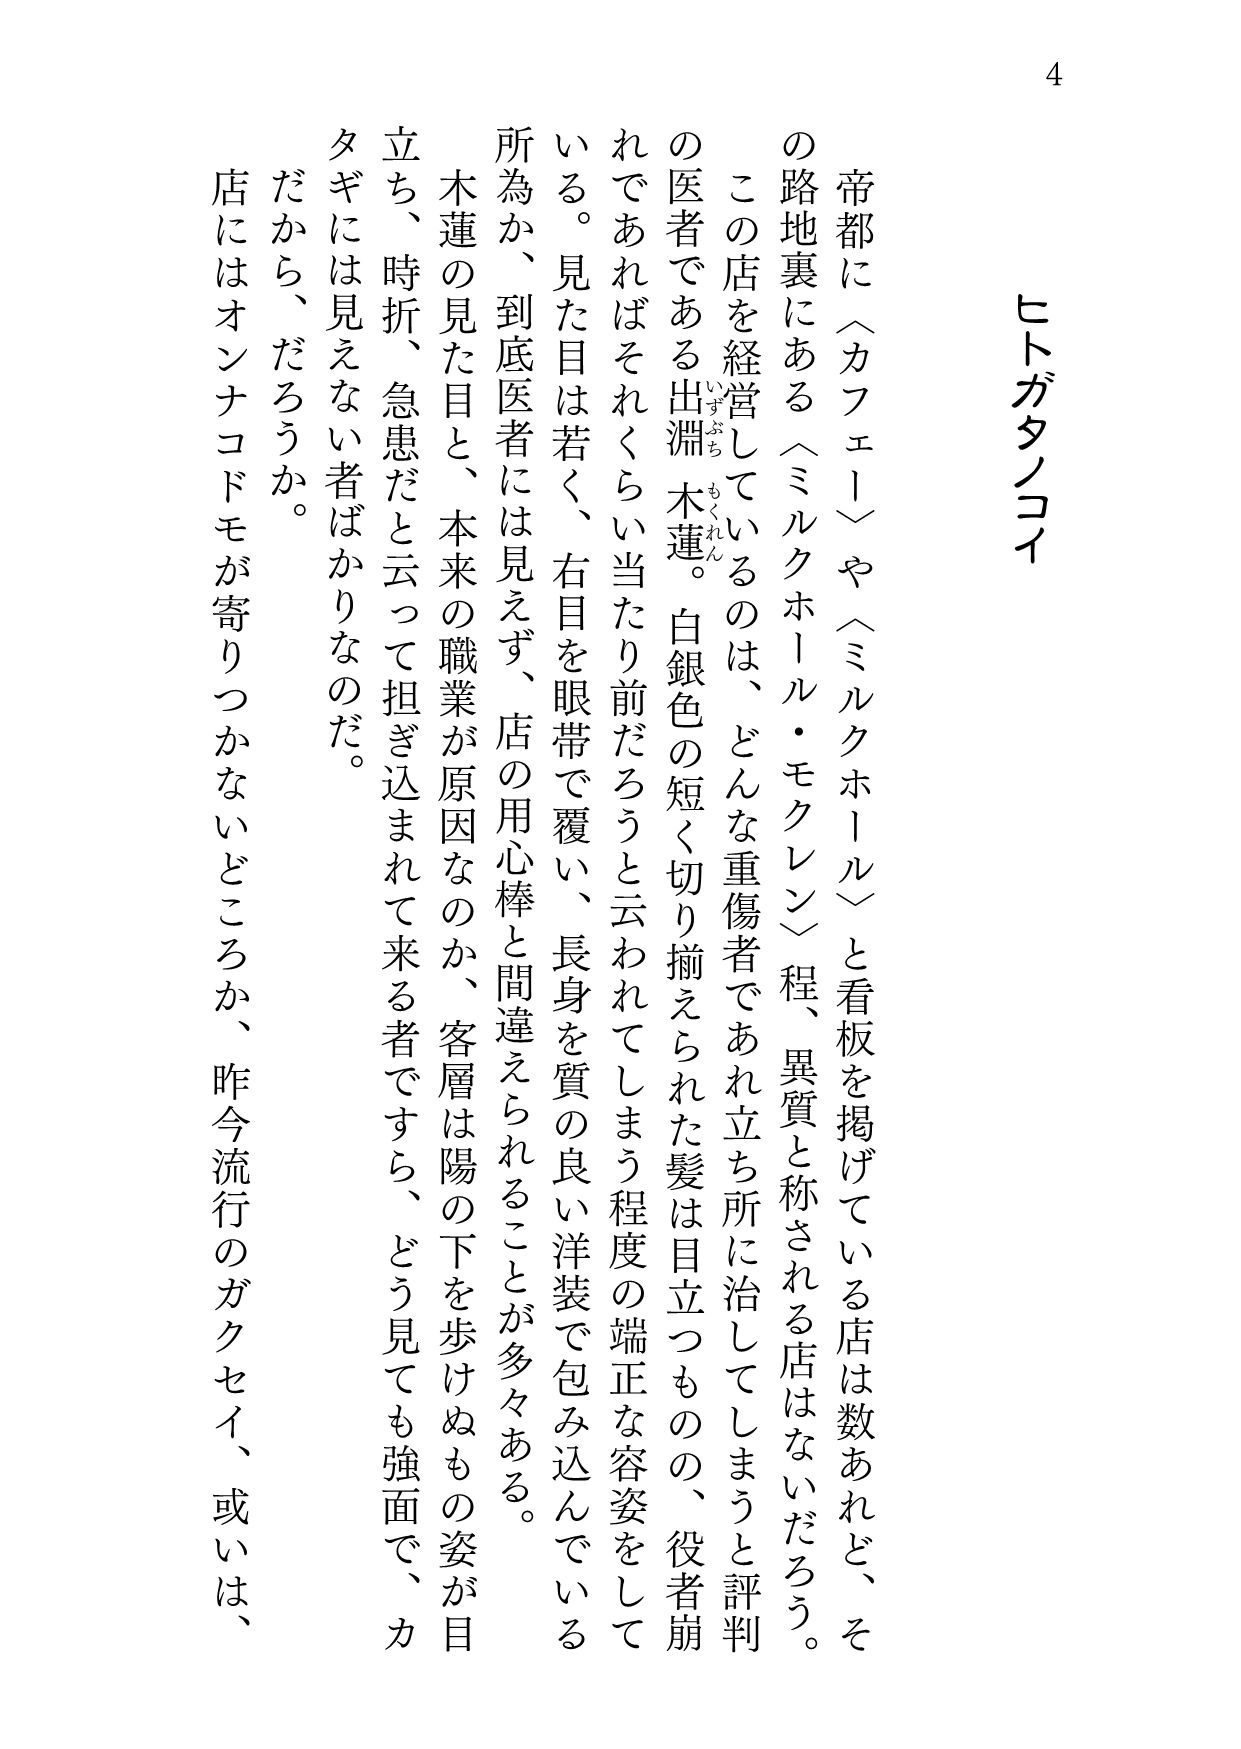 4
ヒトガタノコイ
帝都に〈カフェー〉や〈ミルクホール〉と看板を掲げている店は数あれど、そ
の路地裏にある〈ミルクホール・モクレン〉程、異質と称される店はないだろう。
この店を経営しているのは、どんな重傷者であれ立ち所に治してしまうと評判
の医者である出淵いずぶち 木蓮もくれん。白銀色の短く切り揃えられた髪は目立つものの、役者崩
れであればそれくらい当たり前だろうと云われてしまう程度の端正な容姿をして
いる。見た目は若く、右目を眼帯で覆い、長身を質の良い洋装で包み込んでいる
所為か、到底医者には見えず、店の用心棒と間違えられることが多々ある。
木蓮の見た目と、本来の職業が原因なのか、客層は陽の下を歩けぬもの姿が目
立ち、時折、急患だと云って担ぎ込まれて来る者ですら、どう見ても強面で、カ
タギには見えない者ばかりなのだ。
だから、だろうか。
店にはオンナコドモが寄りつかないどころか、昨今流行のガクセイ、或いは、